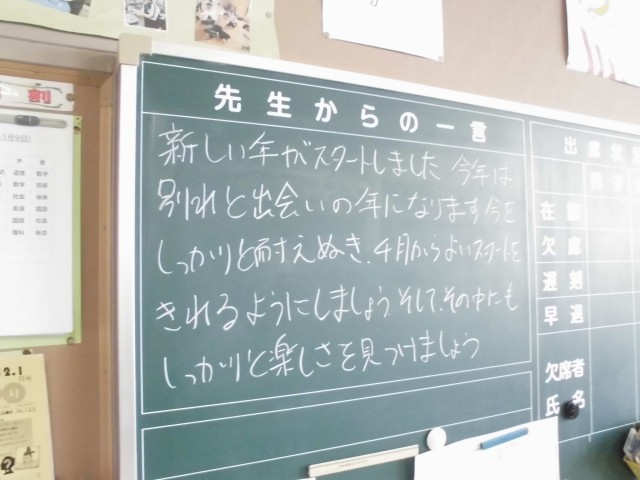 先生からの一言
新しい年がスタートしました 今年は
別れと出会いの年になります 今を
しっかりと耐えぬき、4月からよいスタートを
きれるようにしましょう そして、その中にも
しっかりと楽しさを見つけましょう
出席状
男
在籍
欠席
遅刻
早退
欠席者
氏名
割
12.1